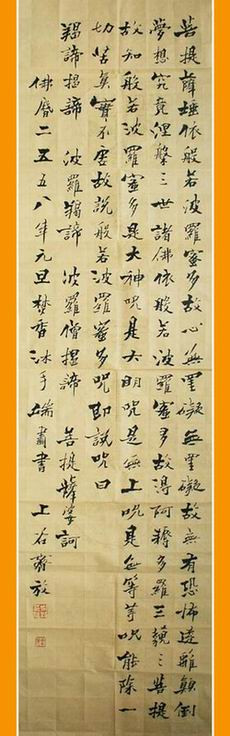 菩提薩埵依般若波羅蜜多故心無罣礙無罣礙故無有恐怖遠離顛倒
夢想究竟涅槃三世諸佛依般若波羅蜜多故得阿耨多羅三藐三菩提
故知般若波羅蜜多是大神咒是大明咒是無上咒是無等等咒能除一
切苦真實不虛故說般若波羅蜜多咒即說咒曰
羯諦揭諦 波羅羯諦 波羅僧揭諦 菩提薩婆訶
佛曆二五五八年元旦焚香沐手端肅書